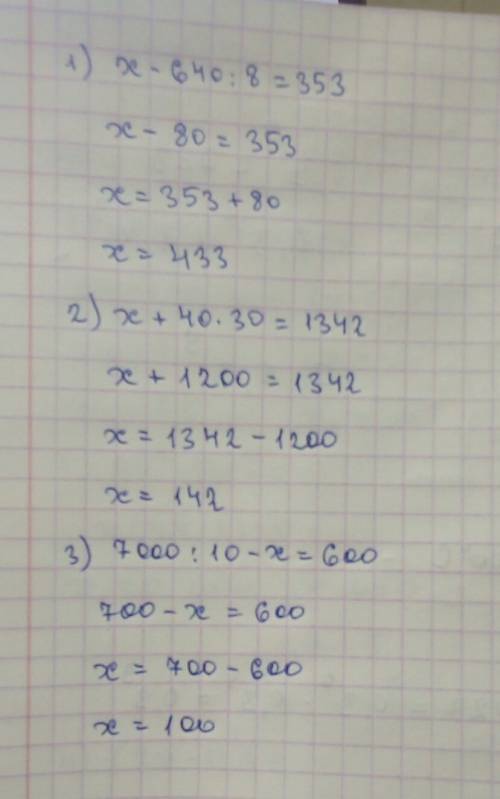 1) x - 640 : 8 = 353
x - 80 = 353
x = 353 + 80
x = 433
2) x + 40 · 30 = 1342
x + 1200 = 1342
x = 1342 - 1200
x = 142
3) 7000 : 10 - x = 600
700 - x = 600
x = 700 - 600
x = 100